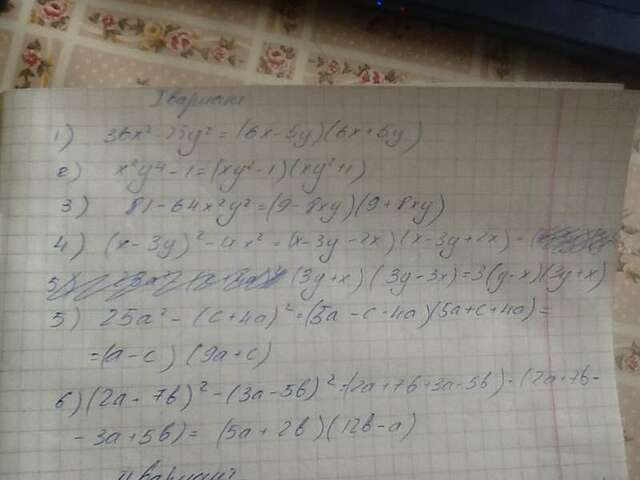 I вариант
1) 36x² - 25y² = (6x-5y)(6x+5y)
2) x²y⁴-1=(xy²-1)(xy²+1)
3) 81-64x²y²=(9-8xy)(9+8xy)
4) (x-3y)²-4x²=(x-3y-2x)(x-3y+2x) =
(3y+x)(3y-3x)=3(y-x)(3y+x)
5) 25a²-(c+4a)²=(5a-c-4a)(5a+c+4a)=
=(a-c)(9a+c)
6) (2a-7b)²-(3a-5b)²=(2a+7b+3a-5b)·(2a+7b-
-3a+5b)= (5a+2b)(12b-a)
II вариант